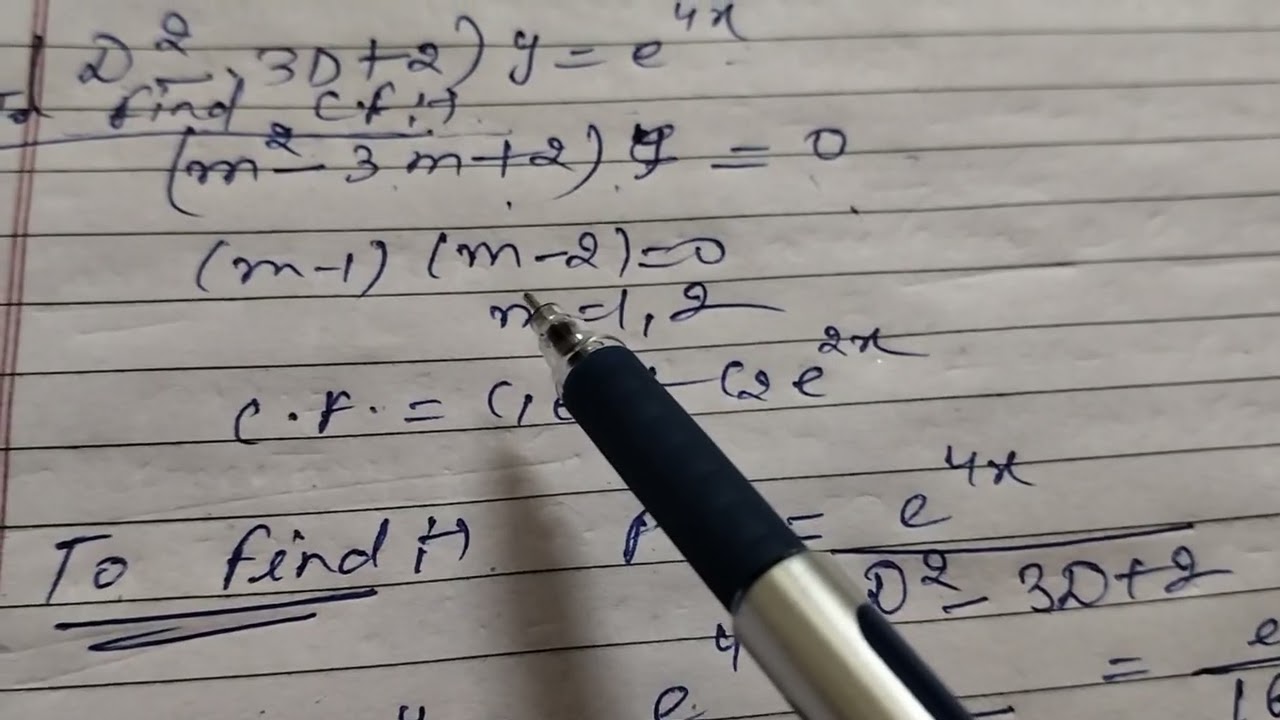 D² - 3D+2) y = e^4x
find C.F.
(m² - 3m+2) = 0
(m-1) (m-2)=0
m=1, 2
C.F. = C₁e C₂e^2x
To find = e^4x / D² - 3D+2